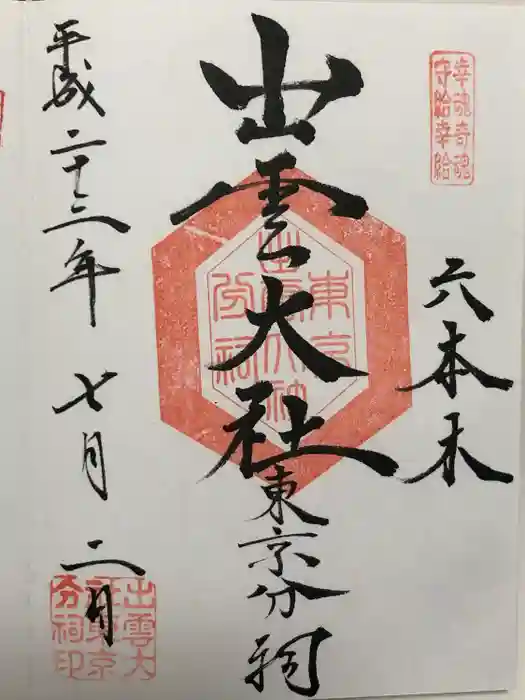 幸魂奇魂
守給幸給
六本木
出雲大社東京分祠
東京
出雲大神
分祠
平成二十三年 七月 二日
出雲大
社東京
分祠印